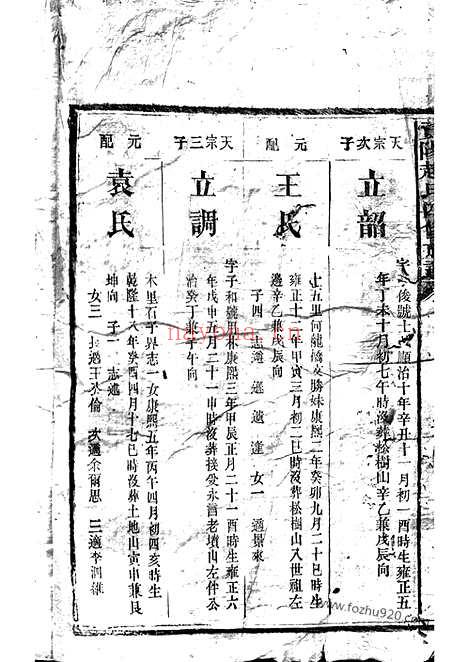 天宗次子
立韶
俊號士 順治十年辛丑十一月初一酉時生雍正五
年丁未十月初七午時沒葬松樹山辛乙兼戌辰向
元配
王氏
七五里何龍橋文勝妹康熙二年癸卯九月二十巳時生
雍正十二年甲寅三月初二巳時沒葬松樹山入世祖左
邊辛乙兼戌辰向
子四 志道 遜 逵 達 女一 適景來
天宗三子
立調
字子和號 和康熙三年甲辰正月二十一酉時生雍正六
年戊申五月二十一申時沒葬接受永言老墳山左件公
治癸丁兼子午向
元配
袁氏
木里石子界志一女康熙五年丙午四月初四亥時生
乾隆十八年癸酉四月十七巳時沒葬土地山寅申兼艮
坤向 子一 志遠
女三 長適王公倫 次適余爾思 三適李泗維
naypha.cn
www.fozhu920.com